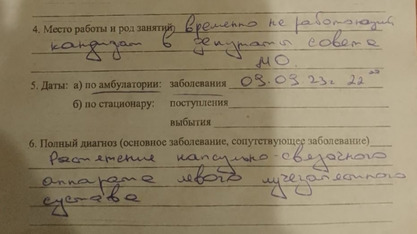 4. Место работы и род занятий: временно не работающий,
кандидат в депутаты совета
МО.
5. Даты: а) по амбулатории: заболевания 09.09.23г. 22⁰⁰
б) по стационару: поступления
выбытия
6. Полный диагноз (основное заболевание, сопутствующее заболевание)
Растяжение капсульно-связочного
аппарата левого лучезапястного
сустава